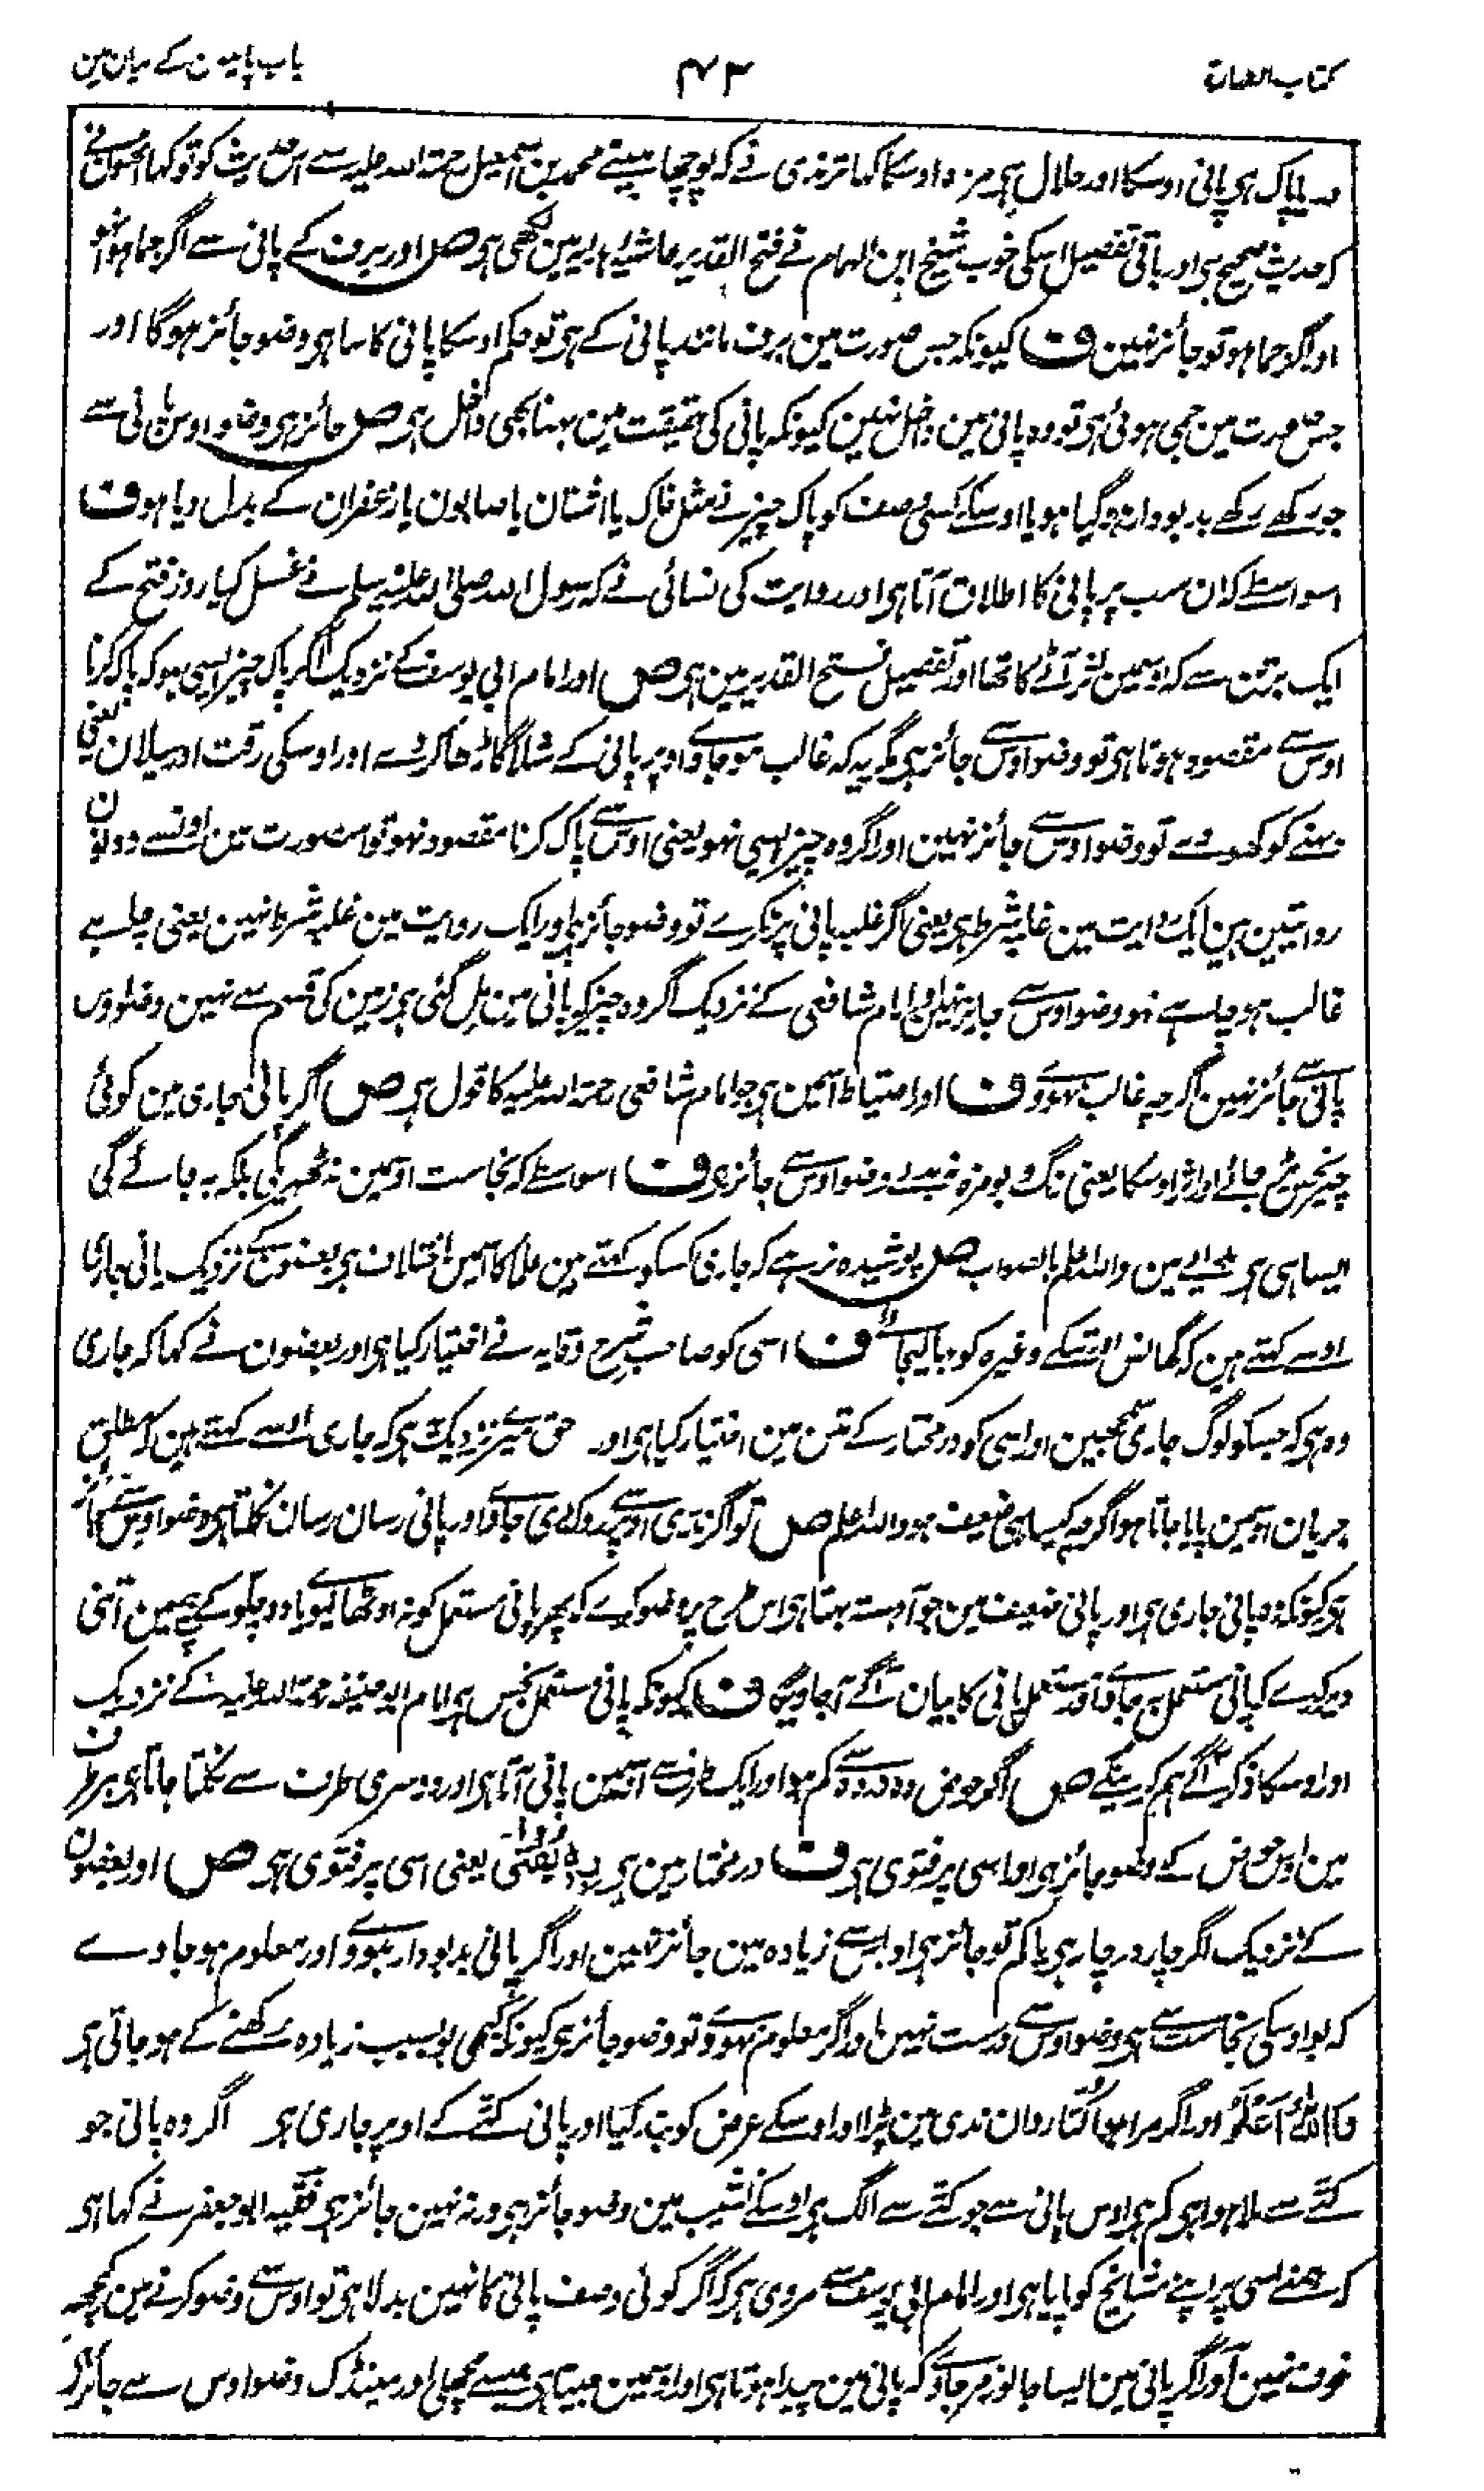 کتاب الطہارة ۴۲ باب پانیون کے بیان مین
دریا پاک ہی پانی اوسکا اور حلال ہی مردہ اوسکا کہا ترمذی نے کہ پوچھا مینے محمد بن اسمعیل رحمتہ اللہ علیہ سے اس حدیث کو تو کہا اونھون نے
کہ حدیث صحیح ہی اور باقی تفصیل اسکی خوب شیخ ابن الہمام نے فتح القدیر حاشیہ ہدایہ مین لکھی ہی ص اور برف کے پانی سے اگر جما ہوا نہو
اور اگر جما ہو تو جائز نہین ف کیونکہ جس صورت مین برف مانند پانی کے ہی تو حکم اوسکا پانی کا سا ہی وضو جائز ہوگا اور
جس صورت مین جمی ہوئی ہی تو وہ پانی مین داخل نہین کیونکہ پانی کی حقیقت مین بہنا بھی داخل ہی ص جائز ہی وضو اوس پانی سے
جو رکھے رکھے بدبودار ہوگیا ہو یا اوسکے کسی وصف کو پاک چیز نے مثل خاک یا اشنان یا صابون یا زعفران کے بدل دیا ہو ف
اسواسطے کہ ان سب پر پانی کا اطلاق آتا ہی اور روایت کی نسائی نے کہ رسول اللہ صلی اللہ علیہ وسلم نے غسل کیا روز فتح کے
ایک برتن سے کہ اوسمین اثر آٹے کا تھا اور تفصیل فتح القدیر مین ہی ص اور امام ابی یوسف کے نزدیک اگر پاک چیز ایسی ہو کہ پاک کرنا
اوس سے مقصود ہوتا ہی تو وضو اوس سے جائز ہی مگر یہ کہ غالب ہو جاوے اوپر پانی کے مثلا گاڑھا کردے اور اوسکی رقت اور سیلان یعنی
بہنے کو کھودے تو وضو اوس سے جائز نہین اور اگر وہ چیز ایسی نہو یعنی اوس سے پاک کرنا مقصود نہو تو اس صورت مین اونسے دونون
روایتین ہین ایک روایت مین غلبہ شرط ہی یعنی اگر غلبہ پانی پر نکرے تو وضو جائز ہی اور ایک روایت مین غلبہ شرط نہین یعنی چاہے
غالب ہو چاہے نہو وضو اوس سے جایز نہین اور امام شافعی کے نزدیک اگر وہ چیز کہ پانی مین مل گئی ہی زمین کی قسم سے نہین وضو اوس
پانی سے جائز نہین اگرچہ غالب نہووے ف اور احتیاط اسمین ہی جو امام شافعی رحمتہ اللہ علیہ کا قول ہی ص اگر پانی جاری مین کوئی
چیز نجس پڑ جائے اور اثر اوسکا یعنی رنگ و بو مزہ نہ بدلے وضو اوس سے جائز ہی ف اسواسطے کہ نجاست اوسمین نہ ٹھہریگی بلکہ بہ جائے گی
ایسا ہی ہی ہدایے مین واللہ اعلم بالصواب ص پوشیدہ نرہے کہ جاری کسکو کہتے ہین علما کا اسمین اختلاف ہی بعضون کے نزدیک پانی جاری
اوسے کہتے ہین کہ گھانس اور تنکے وغیرہ کو بہا لیجائے ف اسی کو صاحب شرح وقایہ نے اختیار کیا ہی اور بعضون نے کہا کہ جاری
وہ ہی کہ جسکو لوگ جاری سمجھین اور اسی کو در مختار کے متن مین اختیار کیا ہی اور حق میرے نزدیک یہ ہی کہ جاری اسے کہتے ہین کہ مطلق
جریان اوسمین پایا جاتا ہو اگرچہ کیسا ہی ضعیف ہو واللہ اعلم ص تو اگر ندی اوپر سے روکدی جاوے اور پانی رسان رسان نکلتا ہی وضو اوس سے جائز
ہی کیونکہ وہ پانی جاری ہی اور پانی ضعیف مین جو آہستہ بہتا ہی اس طرح پر وضو کرے کہ پھر پانی مستعمل کو نہ اوٹھا لیوے یا دو چلو کے بیچ مین اتنی
دیر کرے کہ پانی مستعمل بہ جاوے اور مستعمل پانی کا بیان آگے آجاویگا ف کیونکہ پانی مستعمل نجس ہی امام ابو حنیفہ رحمتہ اللہ علیہ کے نزدیک
اور اوسکا ذکر آگے ہم کرینگے ص اگر حوض دہ در دہ سے کم ہو اور ایک طرف سے اوسمین پانی آتا ہی اور دوسری طرف سے نکلتا جاتا ہی ہر طرف
مین اوس حوض کے وضو جائز ہی اور اسی پر فتوی ہی ف در مختار مین ہی بِہٖ یُفْتٰی یعنی اسی پر فتوی ہی ص اور بعضون
کے نزدیک اگر چار در چار ہی یا کم تو جائز ہی اور اس سے زیادہ مین جائز نہین اور اگر پانی بدبودار ہووے اور معلوم ہو جاوے
کہ بو اوسکی نجاست سے ہی وضو اوس سے درست نہین اور اگر معلوم نہووے تو وضو جائز ہی کیونکہ کبھی بو بسبب زیادہ رکھنے کے ہو جاتی ہی
وَاللّٰہُ اَعْلَمُ اور اگر مرا ہوا کتا روان ندی مین پڑا اور اوسکے عرض کو بند کیا اور پانی کتے کے اوپر جاری ہی اگر وہ پانی جو
کتے سے ملا ہوا ہی کم ہی اوس پانی سے جو کتے سے الگ ہی اوسکے نشیب مین وضو جائز ہی ورنہ نہین جائز ہی فقیہ ابو جعفر نے کہا ہی
کہ ہمنے اسی پر اپنے مشائخ کو پایا ہی اور امام ابی یوسف سے مروی ہی کہ اگر کوئی وصف پانی کا نہین بدلا ہی تو اوس سے وضو کرنے مین کچھ
خوف نہین اور اگر پانی مین ایسا جانور مر جاوے کہ پانی مین پیدا ہوتا ہی اور اوسمین جیتا ہی جیسے مچھلی اور مینڈک وضو اوس سے جائز ہی